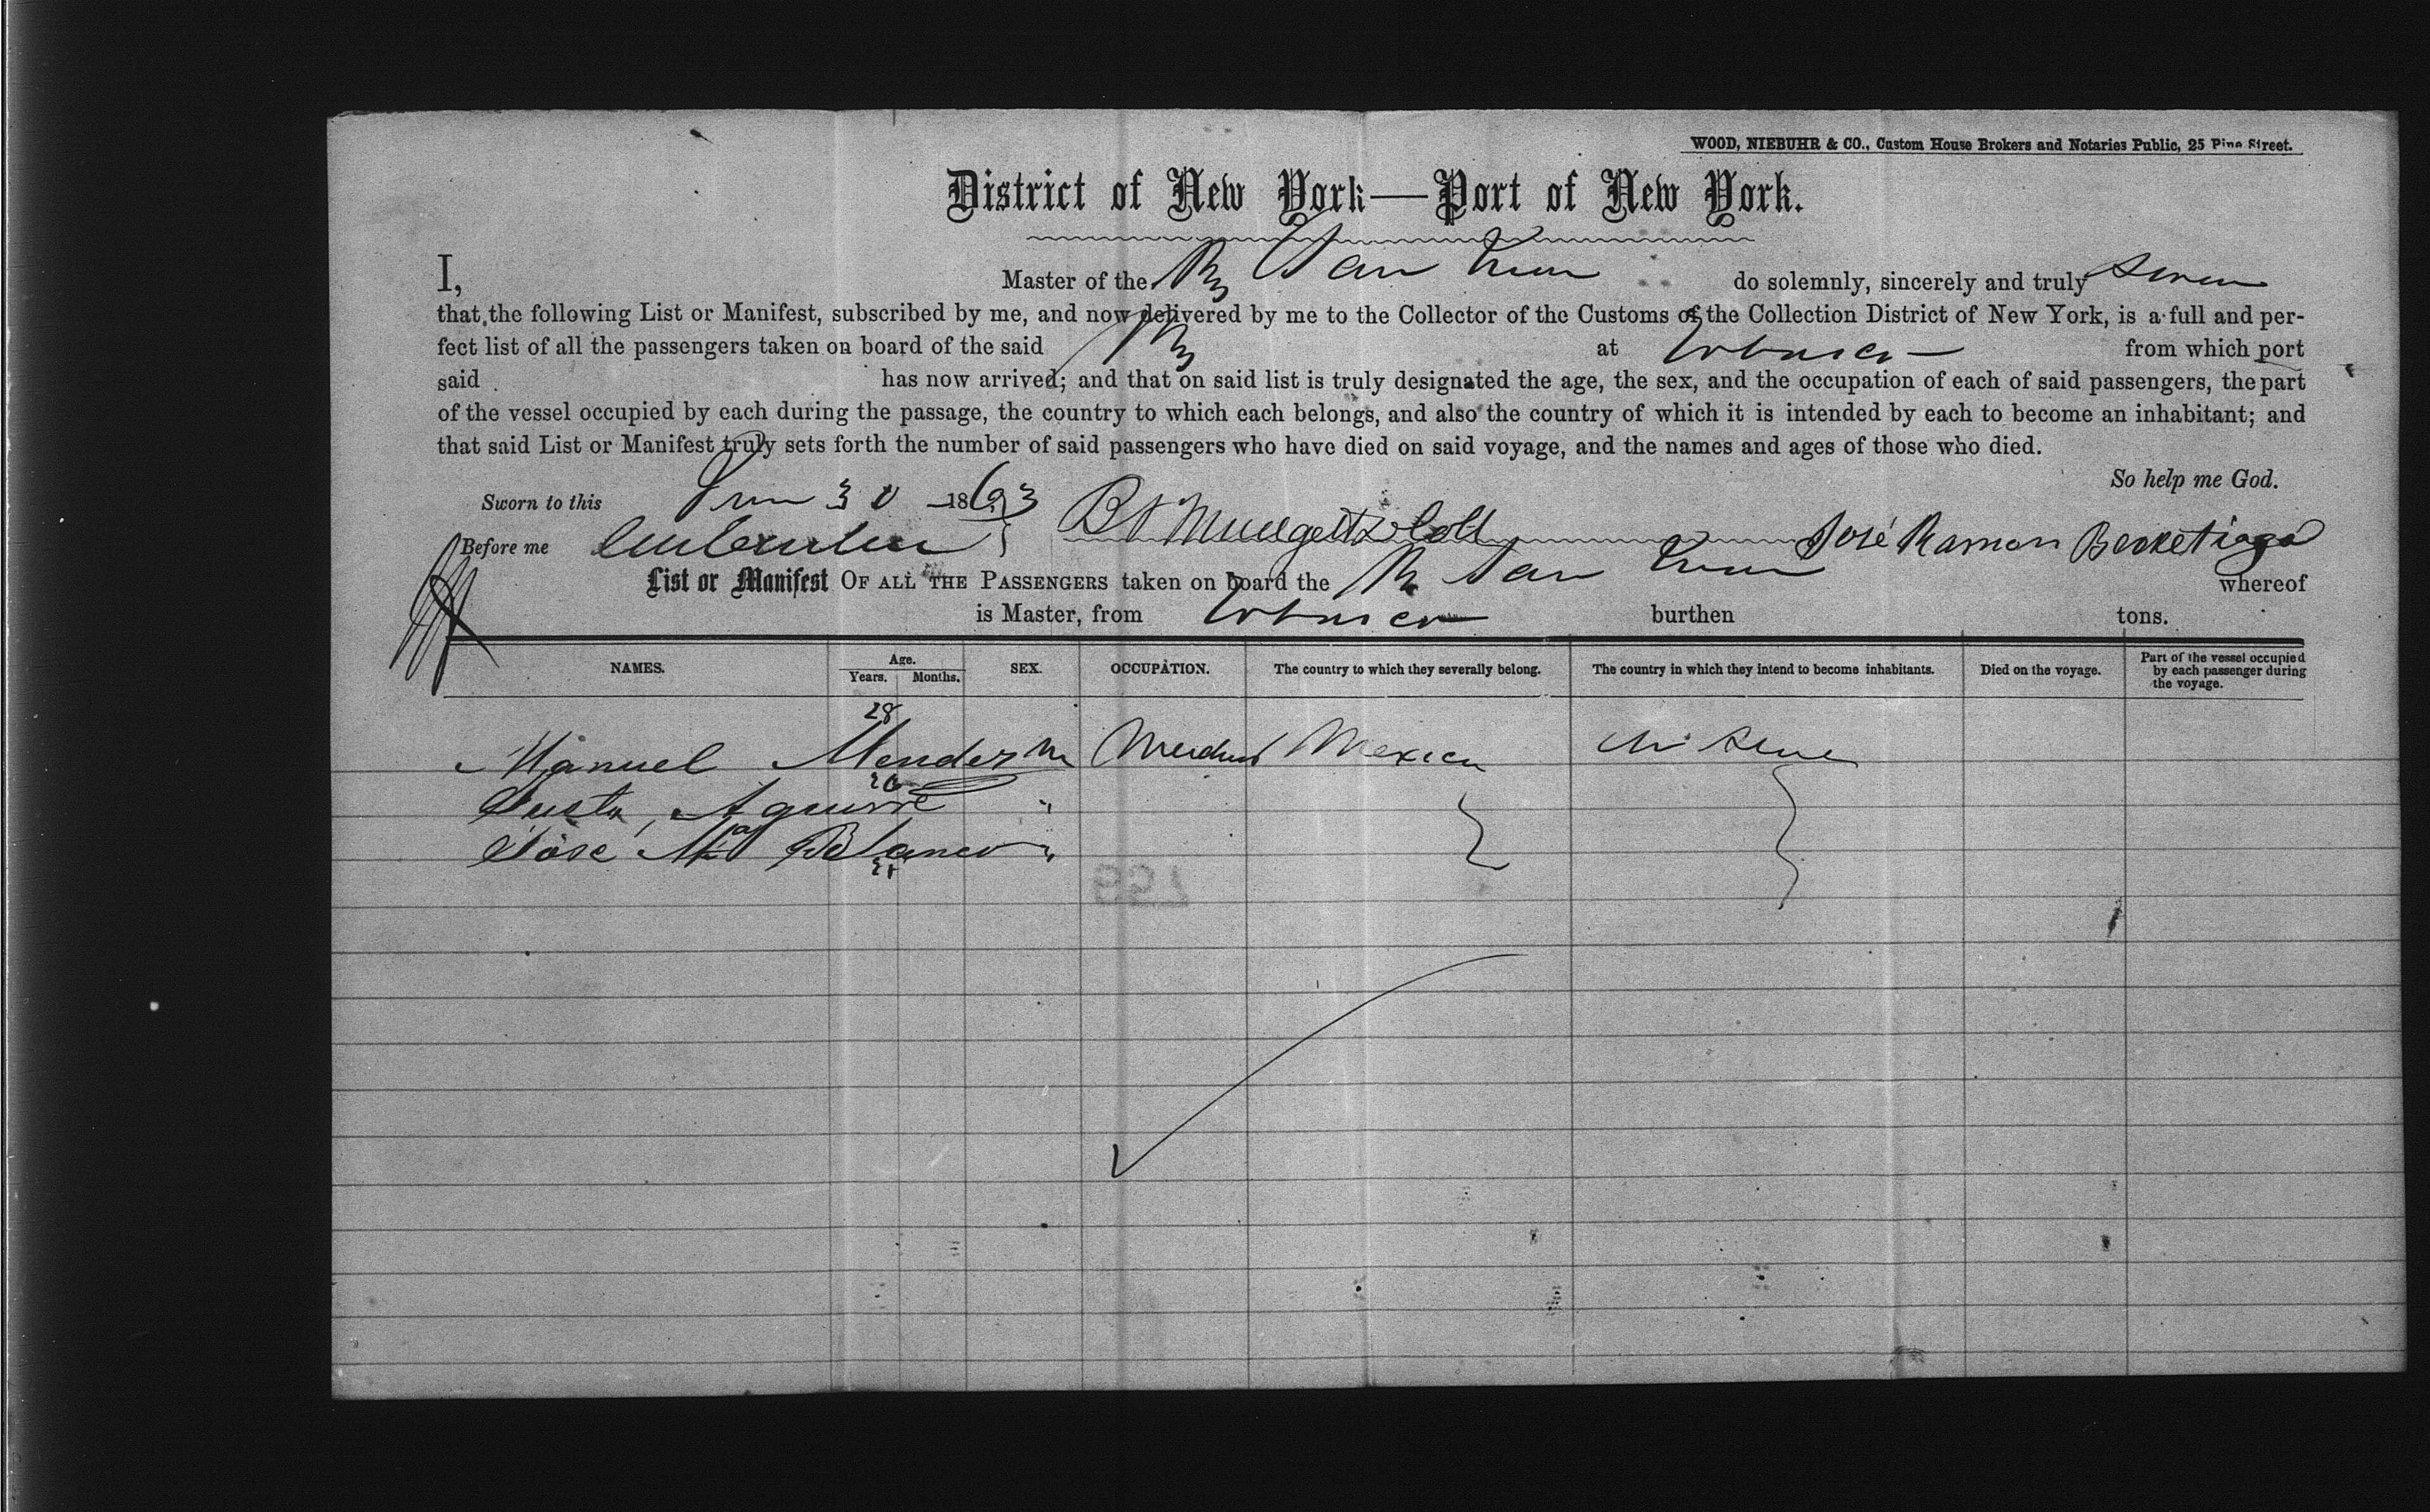 WOOD, NIEBUHR & CO., Custom House Brokers and Notaries Public, 25 Pine Street.
District of New York—Port of New York.
I, Master of the San do solemnly, sincerely and truly
that the following List or Manifest, subscribed by me, and now delivered by me to the Collector of the Customs of the Collection District of New York, is a full and per-
fect list of all the passengers taken on board of the said at from which port
said has now arrived; and that on said list is truly designated the age, the sex, and the occupation of each of said passengers, the part
of the vessel occupied by each during the passage, the country to which each belongs, and also the country of which it is intended by each to become an inhabitant; and
that said List or Manifest truly sets forth the number of said passengers who have died on said voyage, and the names and ages of those who died.
So help me God.
Sworn to this 30 1863
Before me José Ramon
List or Manifest OF ALL THE PASSENGERS taken on board the San whereof
is Master, from burthen tons.
NAMES. Age. Years. Months. SEX. OCCUPATION. The country to which they severally belong. The country in which they intend to become inhabitants. Died on the voyage. Part of the vessel occupied by each passenger during the voyage.
28
Manuel Mendez m Mexico
Aguirre "
José Ma "
557